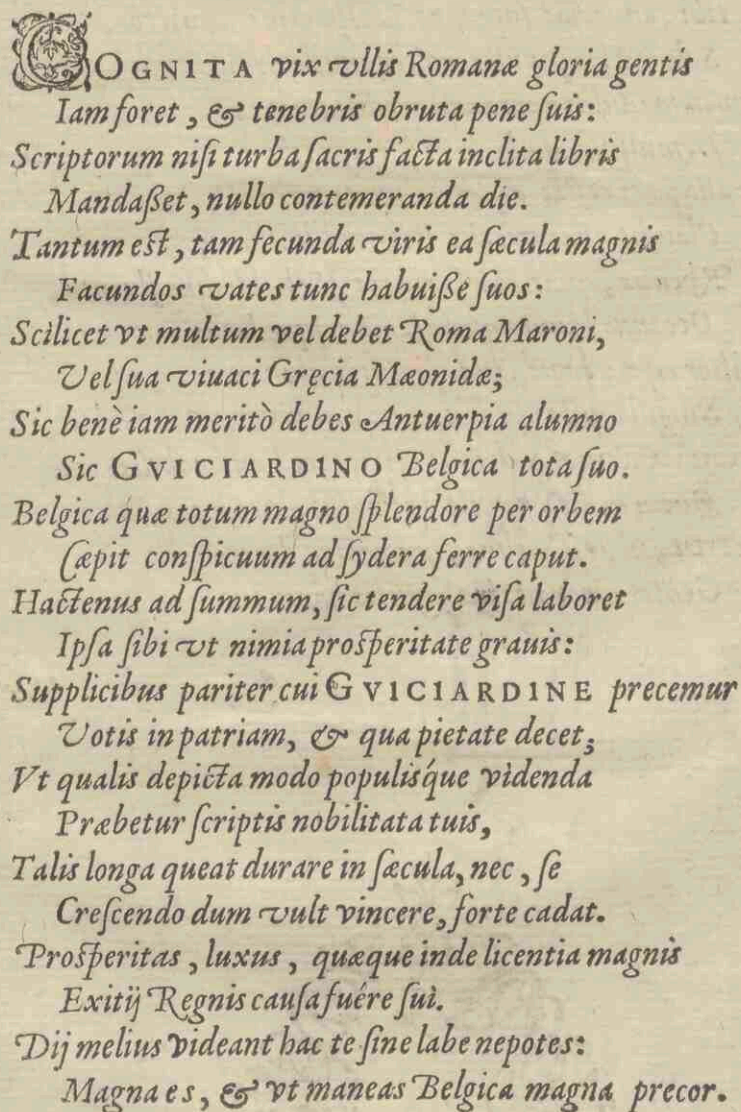 COGNITA vix vllis Romanæ gloria gentis
Iam foret, & tenebris obruta pene suis:
Scriptorum nisi turba sacris facta inclita libris
Mandaßet, nullo contemeranda die.
Tantum est, tam fecunda viris ea sæcula magnis
Facundos vates tunc habuiße suos:
Scilicet vt multum vel debet Roma Maroni,
Vel sua viuaci Gręcia Mæonidæ;
Sic benè iam meritò debes Antuerpia alumno
Sic GVICIARDINO Belgica tota suo.
Belgica quæ totum magno splendore per orbem
Cæpit conspicuum ad sydera ferre caput.
Hactenus ad summum, sic tendere visa laboret
Ipsa sibi vt nimia prosperitate grauis:
Supplicibus pariter cui GVICIARDINE precemur
Votis in patriam, & qua pietate decet;
Vt qualis depicta modo populisq́ue videnda
Præbetur scriptis nobilitata tuis,
Talis longa queat durare in sæcula, nec, se
Crescendo dum vult vincere, forte cadat.
Prosperitas, luxus, quæque inde licentia magnis
Exitij Regnis causa fuére sui.
Dij melius videant hac te sine labe nepotes:
Magna es, & vt maneas Belgica magna precor.